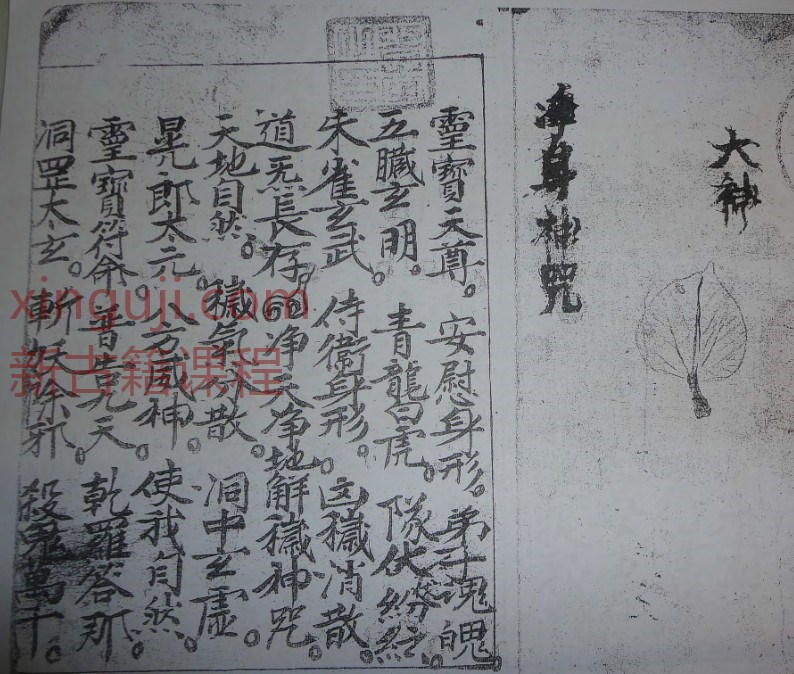 大神
净身神咒
靈寶天尊。安慰身形。弟子魂魄。
五臟玄明。青龍白虎。隊伏紛紜。
朱雀玄武。侍衛身形。凶穢消散。
道炁長存。净天净地解穢神咒。
天地自然。穢氣分散。洞中玄虛。
晃郎太元。八方威神。使我自然。
靈寶符命。普告九天。乾羅答那。
洞罡太玄。斬妖除邪。殺鬼萬千。
xinguji.com
新古籍课程